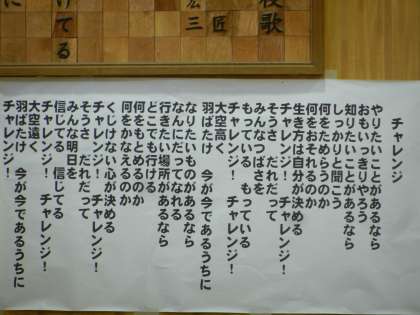 校歌
匠
宏三
けてる
に
チャレンジ
やりたいことがあるなら
おもいっきりやろう
知りたいことがあるなら
しっかりと聞こう
何をためらうのか
何をおそれるのか
生き方は自分が決める
チャレンジ！　チャレンジ！
そうさ　だれだって
みんなつばさを
もっている　もっている
チャレンジ！　チャレンジ！
大空高く
羽ばたけ　今が今であるうちに
なりたいものがあるなら
なんにだってなれる
行きたい場所があるなら
どこでも行ける
何をもとめるのか
何をかなえるのか
くじけない心が決める
チャレンジ！　チャレンジ！
そうさ　だれだって
みんな明日を
信じてる　信じてる
チャレンジ！　チャレンジ！
大空遠く
羽ばたけ　今が今であるうちに
チャレンジ！